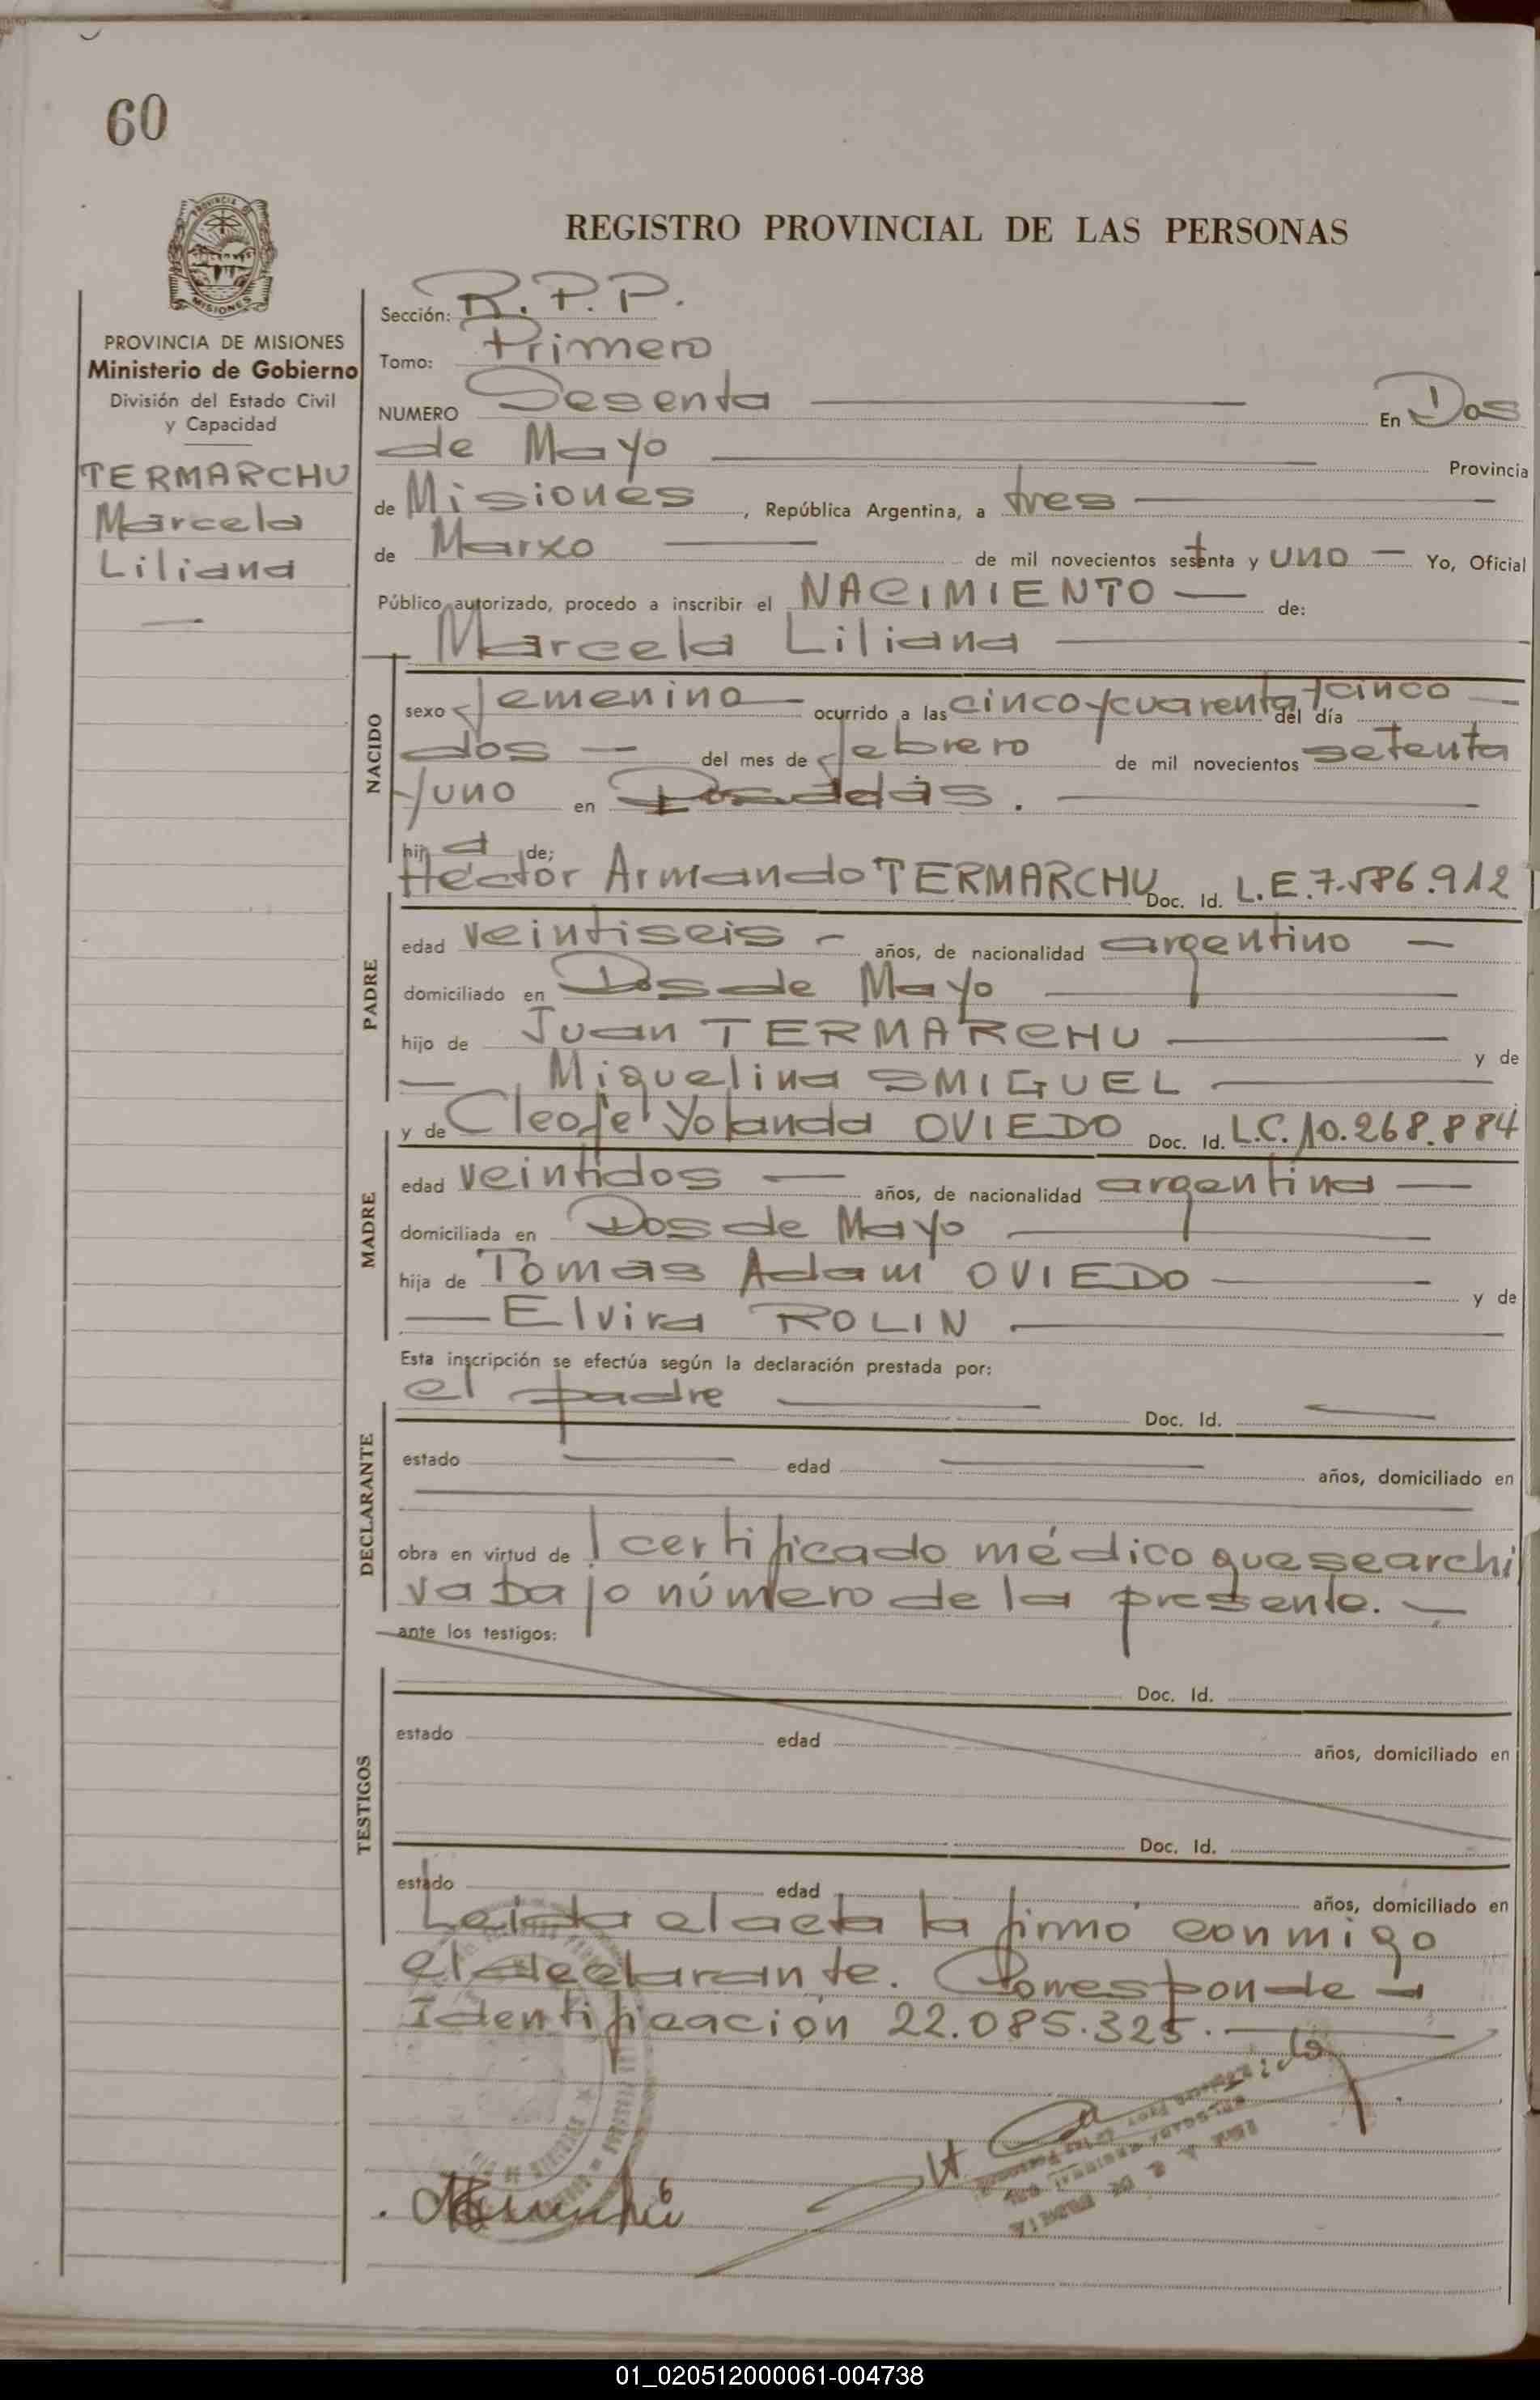 60
PROVINCIA DE MISIONES
Ministerio de Gobierno
División del Estado Civil
y Capacidad
TERMARCHU
Marcela
Liliana
REGISTRO PROVINCIAL DE LAS PERSONAS
Sección: R.P.P.
Tomo: Primero
NUMERO Sesenta En Dos
de Mayo Provincia
de Misiones, República Argentina, a tres
de Marxo de mil novecientos setenta y uno Yo, Oficial
Público autorizado, procedo a inscribir el NACIMIENTO de:
Marcela Liliana
NACIDO
sexo femenino ocurrido a las cinco y cuarenta y cinco del día
dos del mes de febrero de mil novecientos setenta
y uno en Posadas.
hija de;
Héctor Armando TERMARCHU Doc. Id. L.E.7.586.912
PADRE
edad veintiseis años, de nacionalidad argentino
domiciliado en Dos de Mayo
hijo de Juan TERMARCHU y de
Miquelina SMIGUEL
y de Cleofe Yolanda OVIEDO Doc. Id. L.C.10.268.884
MADRE
edad veintidos años, de nacionalidad argentina
domiciliada en Dos de Mayo
hija de Tomas Adam OVIEDO y de
Elvira ROLIN
Esta inscripción se efectúa según la declaración prestada por:
el padre Doc. Id.
DECLARANTE
estado edad años, domiciliado en
obra en virtud de 1 certificado médico que se archi
va bajo número de la presente.
ante los testigos:
TESTIGOS
Doc. Id.
estado edad años, domiciliado en
Doc. Id.
estado edad años, domiciliado en
Leida el acta la firmó conmigo
el declarante. Corresponde a
Identificación 22.085.325.
01_020512000061-004738